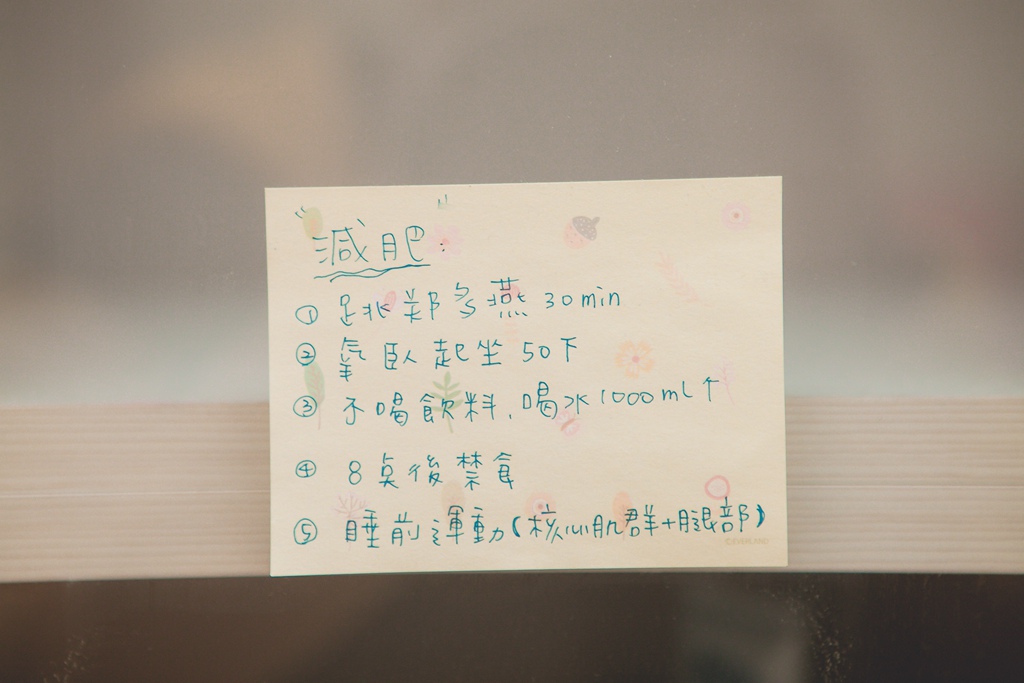 減肥:
① 跳鄭多燕 30min
② 氧臥起坐 50下
③ 不喝飲料,喝水1000mL↑
④ 8奌後禁食
⑤ 睡前運動(核心肌群+腿部)